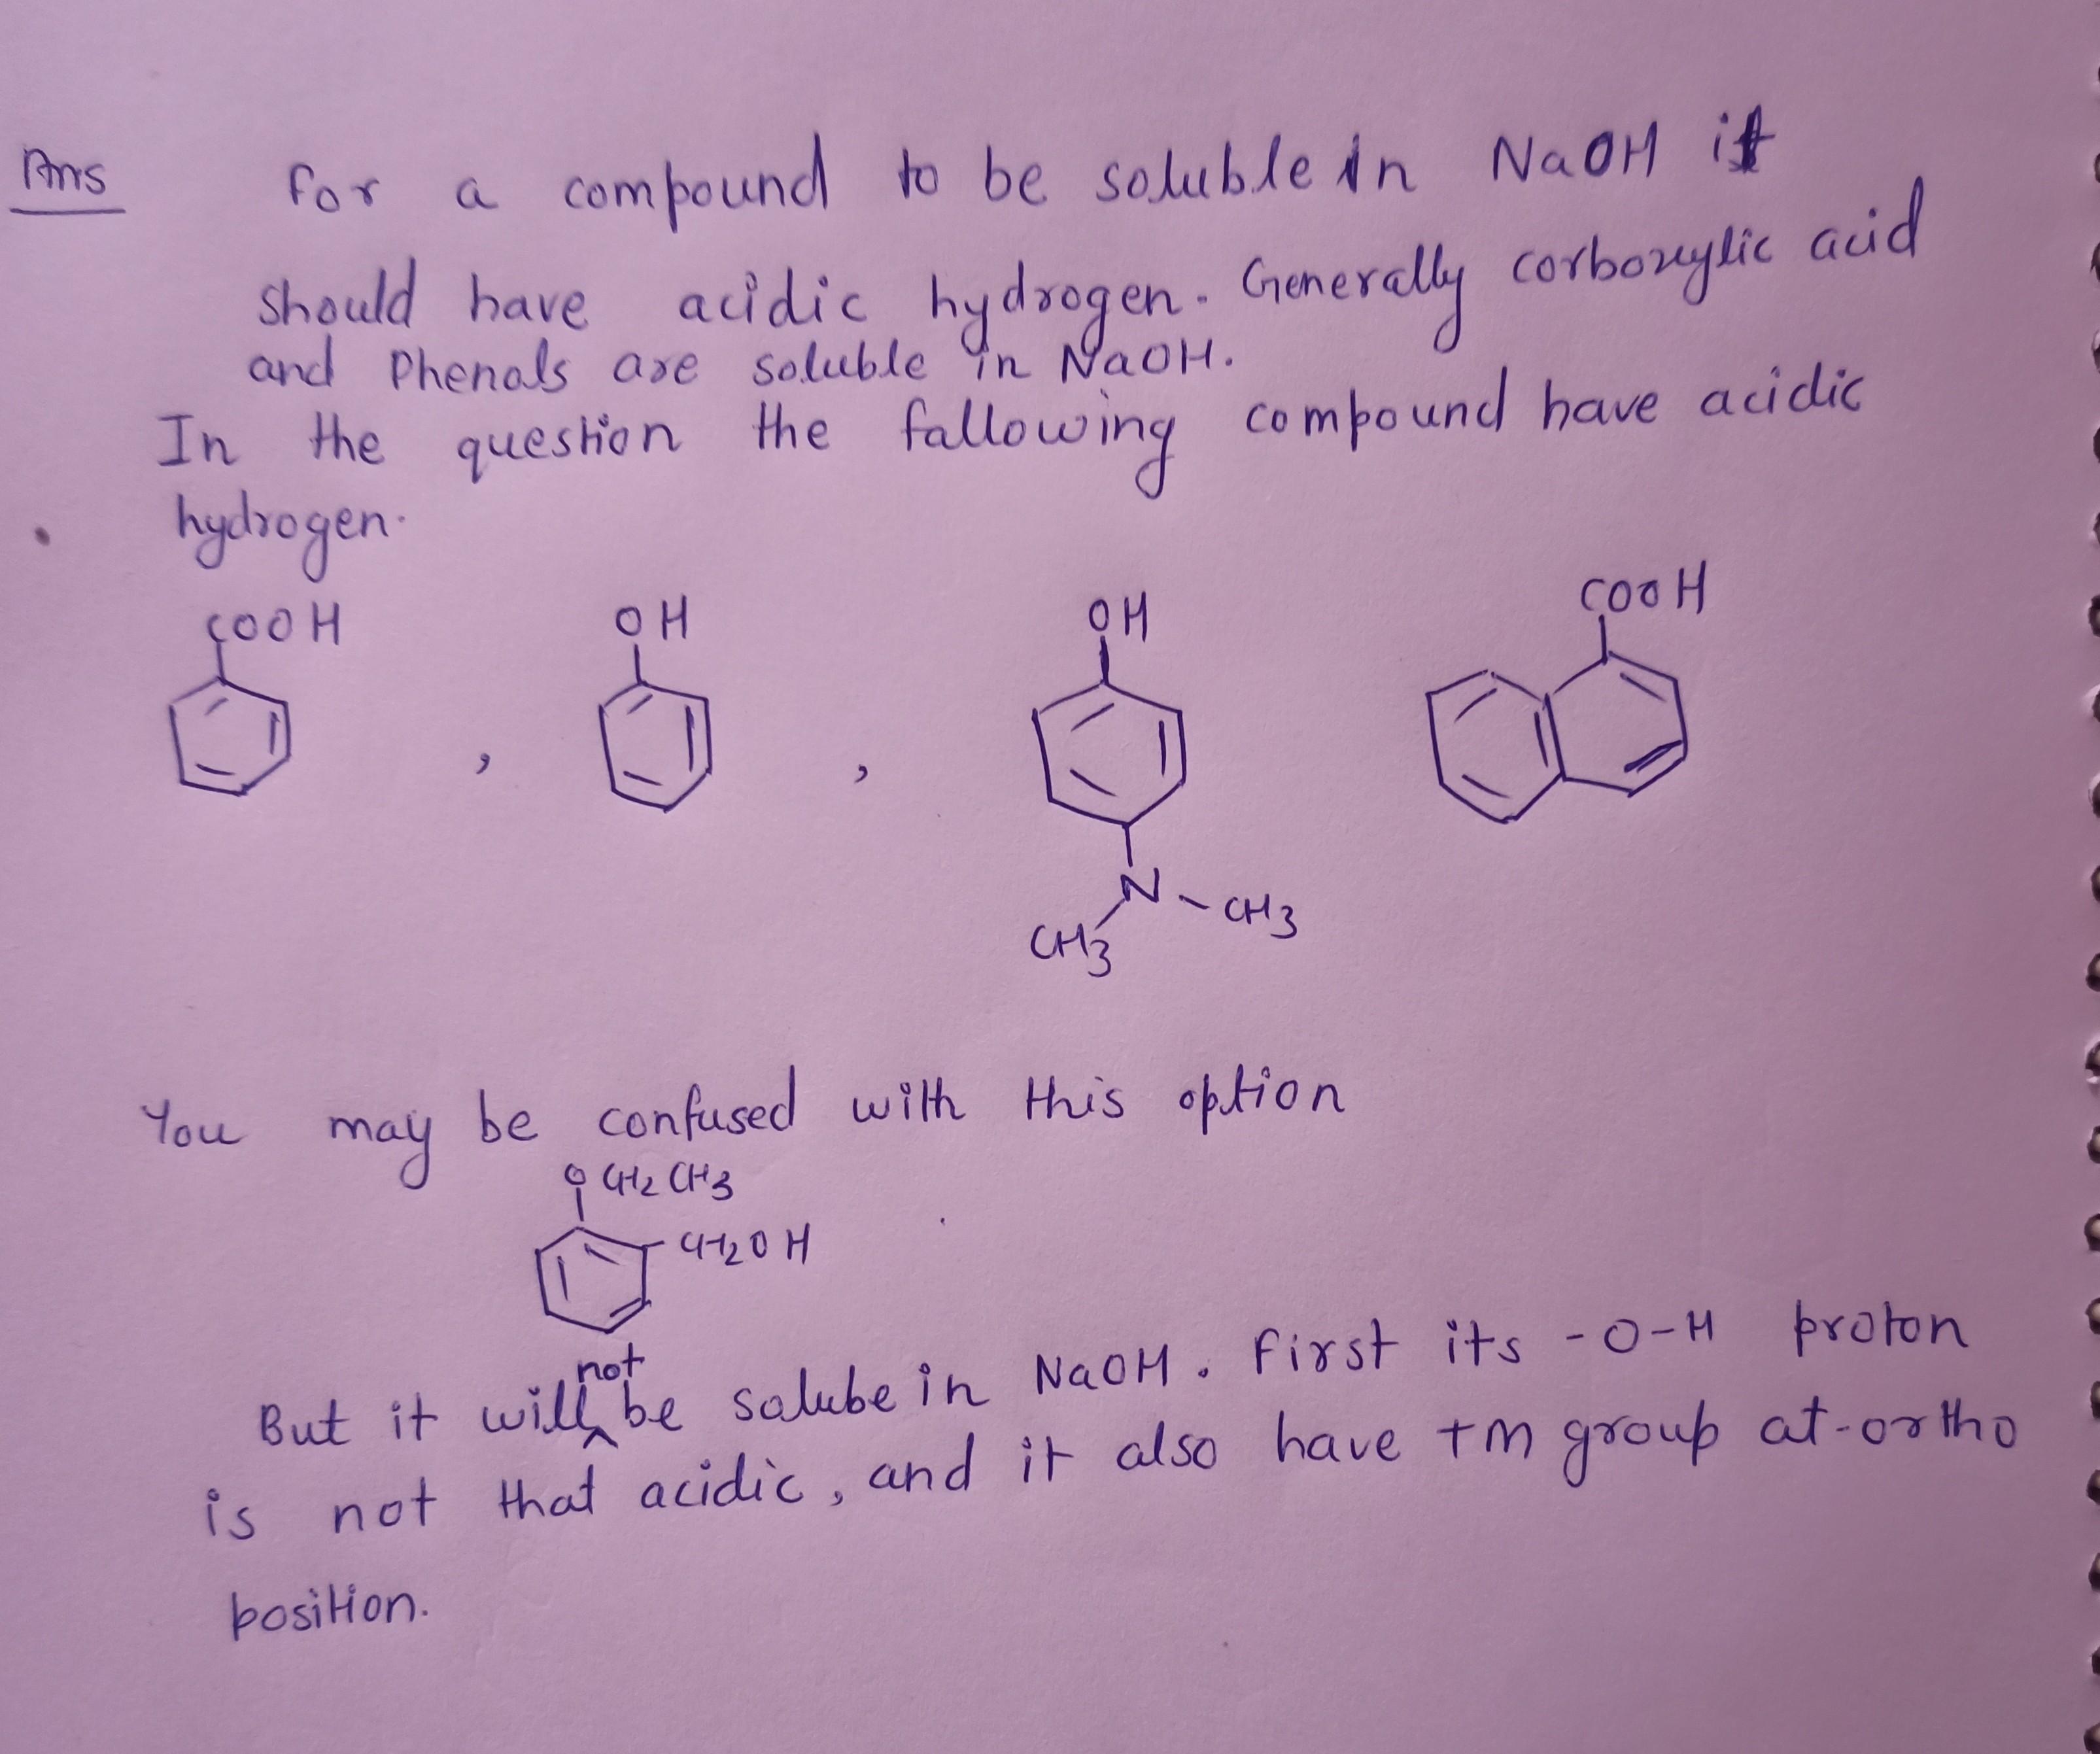 Ans For a compound to be soluble in NaOH it
should have acidic hydrogen. Generally corboxylic acid
and Phenols are soluble in NaOH.
In the question the fallowing compound have acidic
hydrogen.
COOH OH OH COOH
, ,
N - CH3
CH3
You may be confused with this option
O CH2 CH3
- CH2O H
not
But it will be salube in NaOH. First its -O-H proton
is not that acidic, and it also have +m group at-ortho
position.